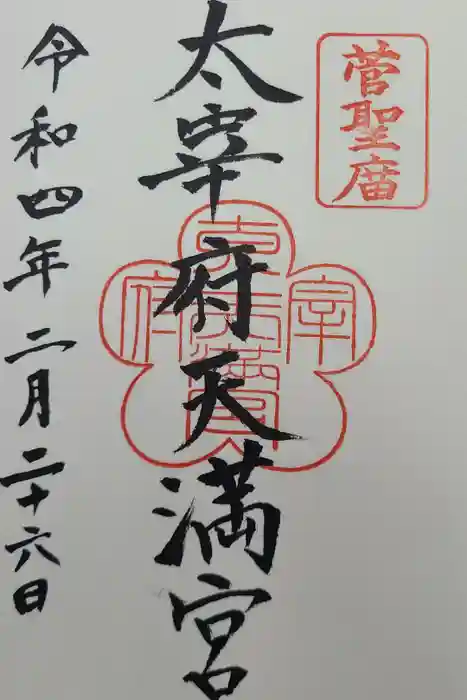 菅聖庿
太宰府天満宮
令和四年二月二十六日